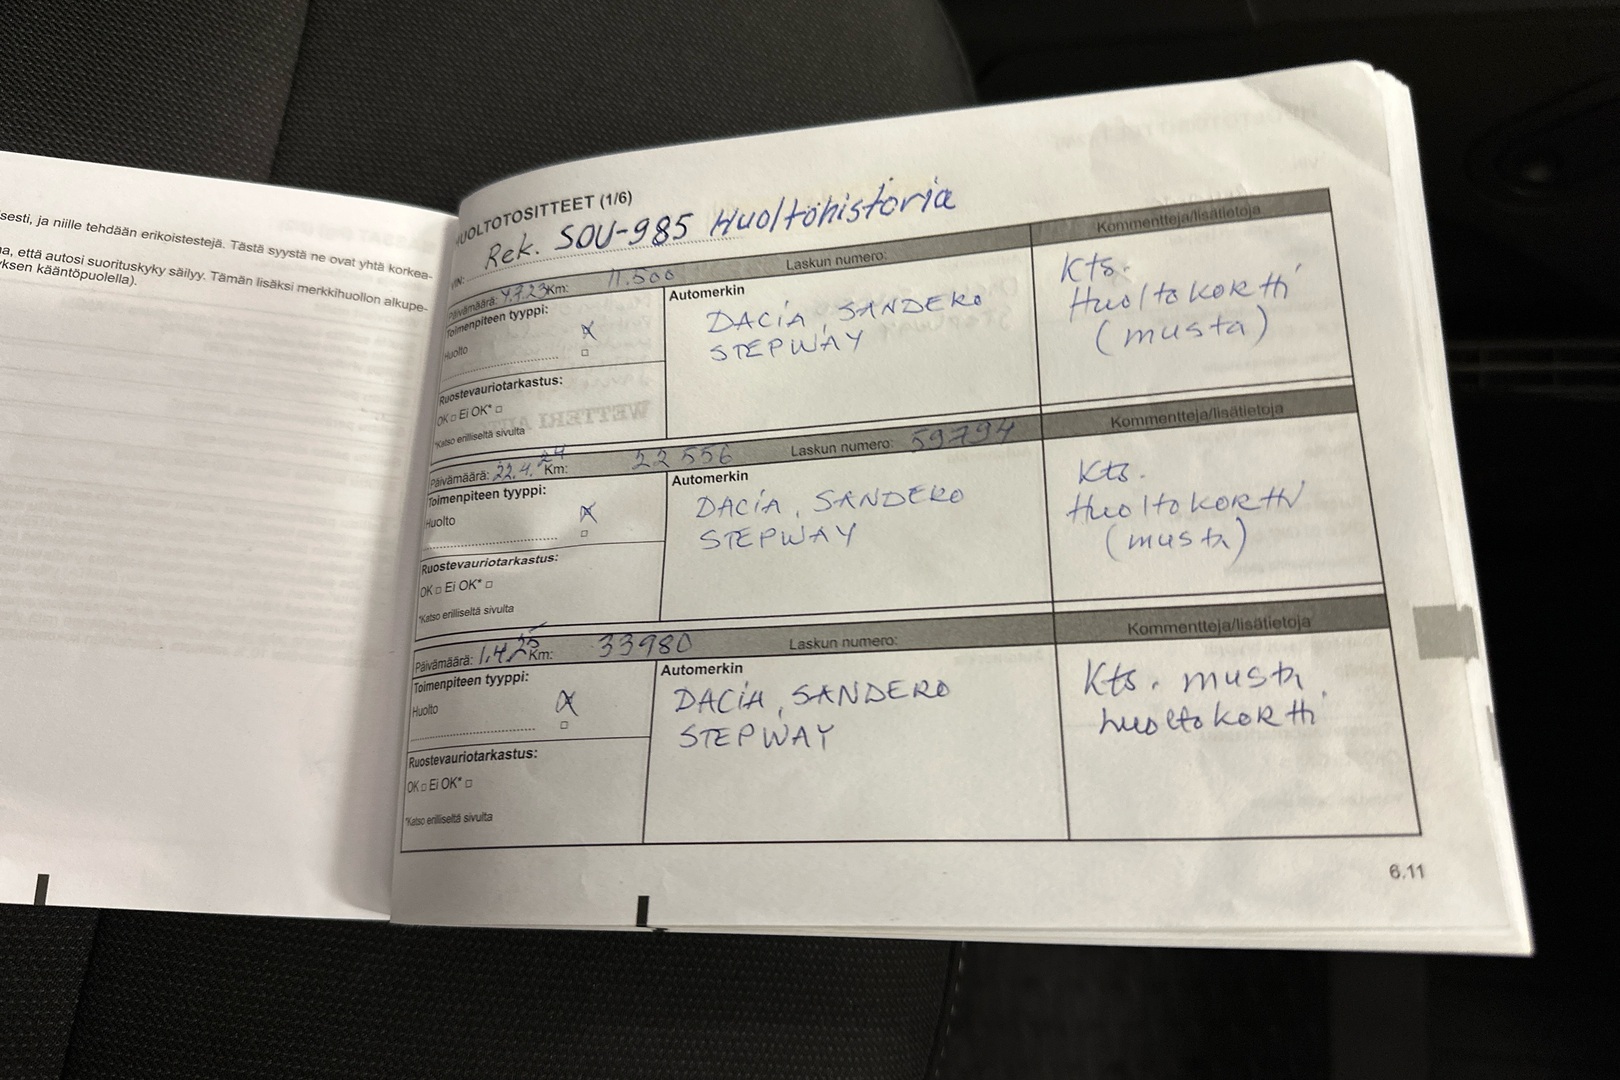 sesti, ja niille tehdään erikoistestejä. Tästä syystä ne ovat yhtä korkea-
a, että autosi suorituskyky säilyy. Tämän lisäksi merkkihuollon alkupe-
ksen kääntöpuolella).
HUOLTOTOSITTEET (1/6)
VIN: Rek. SOU-985 Huoltohistoria
Päivämäärä: 4.7.23 Km: 11.500 Laskun numero: Kommentteja/lisätietoja
Toimenpiteen tyyppi:
Huolto
Ruostevauriotarkastus:
OK □ Ei OK* □
*Katso erilliseltä sivulta
Automerkin
DACIA, SANDERO
STEPWAY
Kts.
Huoltokortti
(musta)
Päivämäärä: 22.4.24 Km: 22 556 Laskun numero: 59794 Kommentteja/lisätietoja
Toimenpiteen tyyppi:
Huolto
Ruostevauriotarkastus:
OK □ Ei OK* □
*Katso erilliseltä sivulta
Automerkin
DACIA, SANDERO
STEPWAY
Kts.
Huoltokortti
(musta)
Päivämäärä: 1.4.25 Km: 33980 Laskun numero: Kommentteja/lisätietoja
Toimenpiteen tyyppi:
Huolto
Ruostevauriotarkastus:
OK □ Ei OK* □
*Katso erilliseltä sivulta
Automerkin
DACIA, SANDERO
STEPWAY
Kts. musta
huoltokortti
6.11